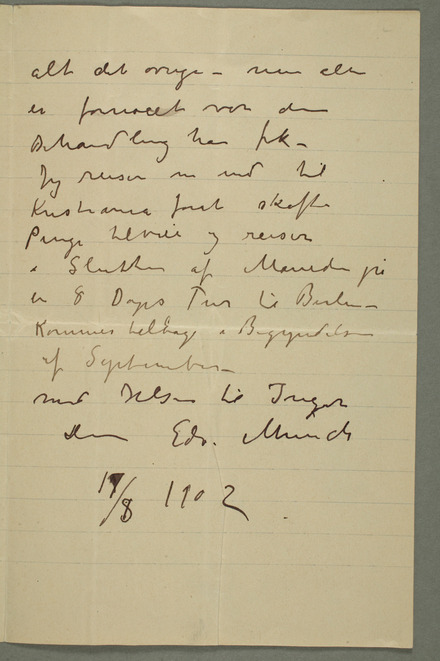 alt det øvrige – men alle
er forarget over den
Behandling han fik –
Jeg reiser nu ind til
Kristiania forat skaffe
Penge tilveie og reiser
i Slutten af Maaneden på
en 8 Dages Tur til Berlin –
Kommer tilbage i Begyndelsen
af September –
med Hilsen til Inger
Din Edv. Munch
17/8 1902